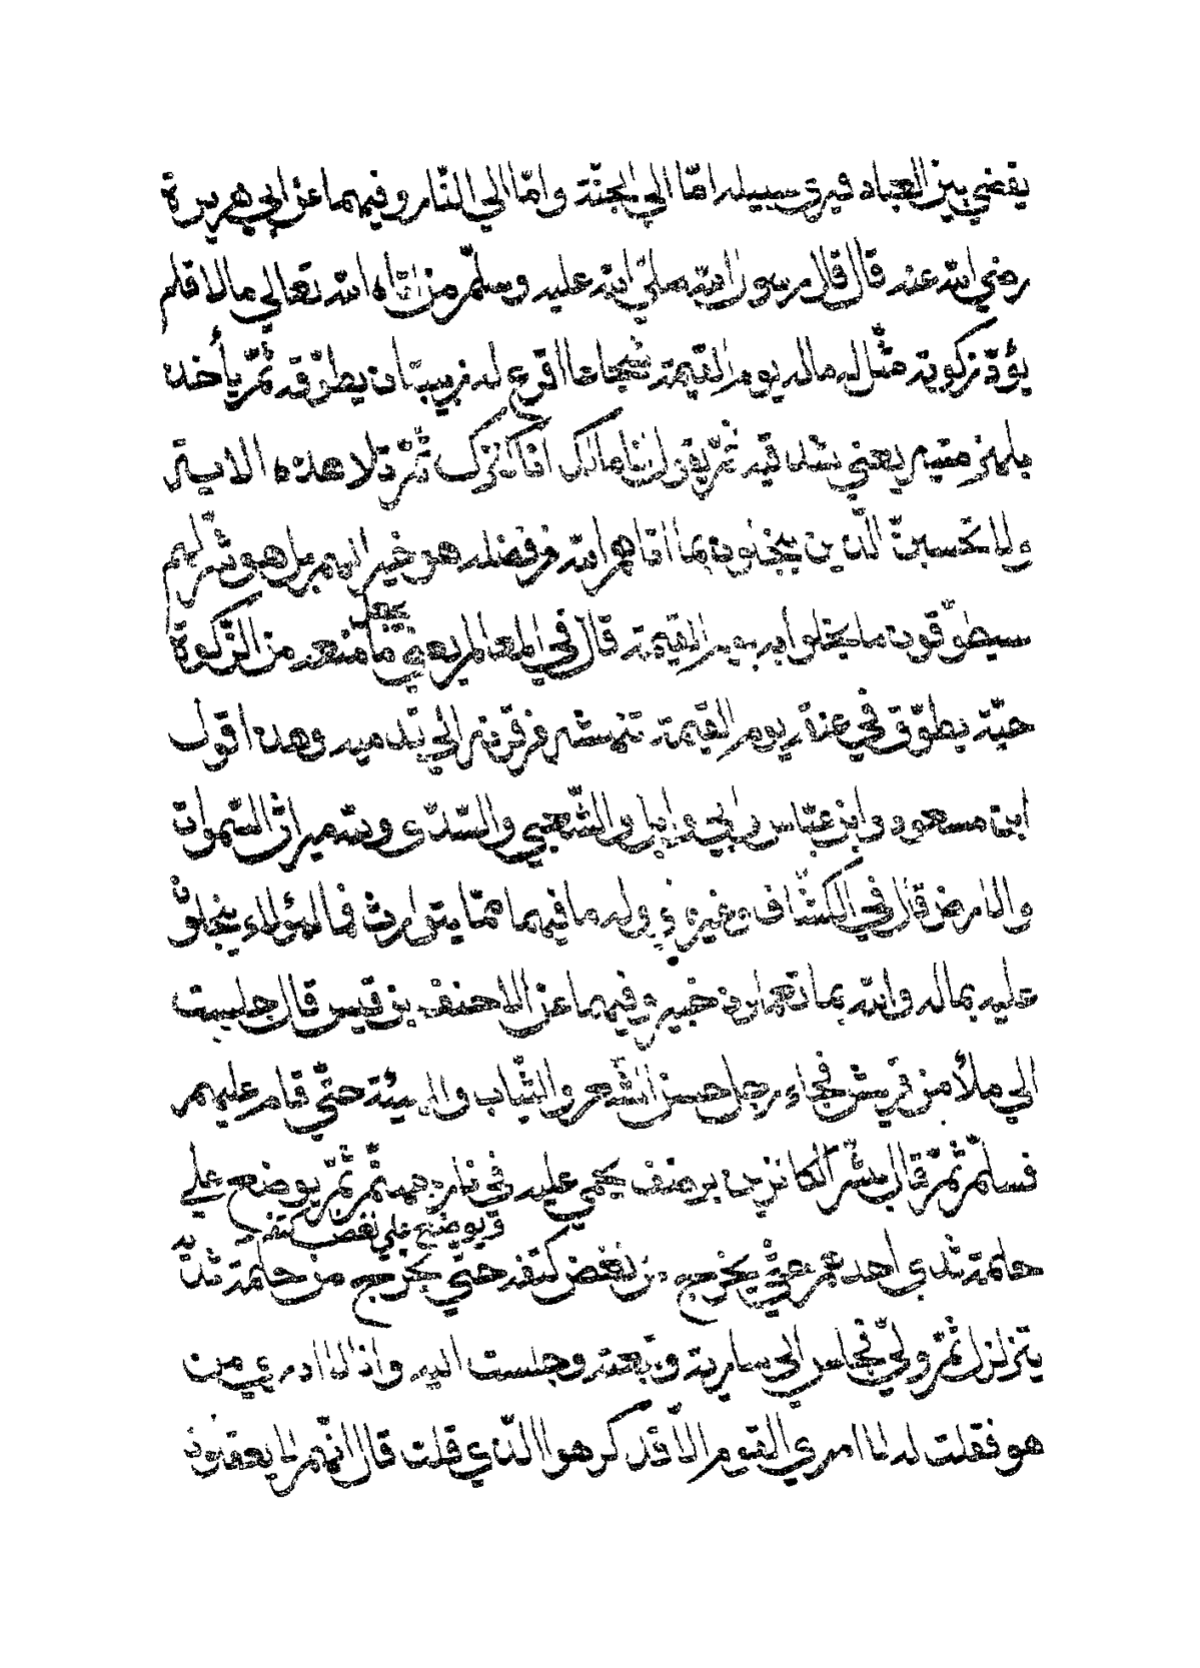 يقضي بين العباد فيري سبيله امّا الي الجنّة وامّا الي النّار وفيهما عن ابي هريرة
رضي الله عنه قال قال رسول الله صلّي الله عليه وسلّم من اتاه الله تعالي مالا فلم
يؤدّ زكوته مثّل له ماله يوم القيمة شجاعا اقرع له زبيبتان يطوّقه ثمّ يأخذ
بلهزمتيه يعني شدقيه ثمّ يقول انا مالك انا كنزك ثمّ تلا هذه الاية
ولا تحسبنّ الّذين يبخلون بما اتاهم الله من فضله هو خيرا لهم بل هو شرّ لهم
سيطوّقون ما بخلوا به يوم القيمة قال في المعالم يعني يجعل ما منعه من الزّكوة
حيّة يطوّق في عنقه يوم القيمة تنهشه من قرنه الي قدميه وهذا قول
ابن مسعود وابن عبّاس وابي وايل والشّعبي والسّدّي ولله ميراث السّموات
والارض قال في الكشّاف وغيره وله ما فيهما ممّا يتوارث فما لهؤلاء يبخلون
عليه بماله والله بما تعملون خبير وفيهما عن الاحنف بن قيس قال جلست
الي ملأ من قريش فجاء رجل حسن الشّعر والثّياب والهيئة حتّي قام عليهم
فسلّم ثمّ قال بشّر الكانزين برضف يحمي عليه في نار جهنّم ثمّ يوضع علي
حلمة ثدي احدهم حتّي يخرج من نغض كتفه حتّي يخرج من حلمة ثديه
ويوضع علي نغض كتفه
يتزلزل ثمّ ولّي فجلس الي سارية وتبعته وجلست اليه وانا لا ادري من
هو فقلت له لا اري القوم الّا قد كرهوا الّذي قلت قال انّهم لا يعقلون